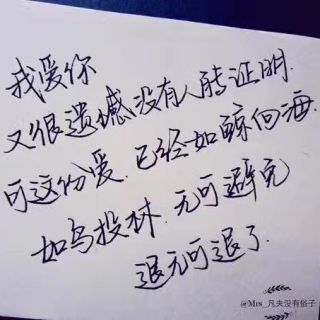 我爱你
又很遗憾没有人能证明.
可这份爱.已经如鲸向海.
如鸟投林.无可避免
退无可退了.
@Mrs_凡夫没有俗子